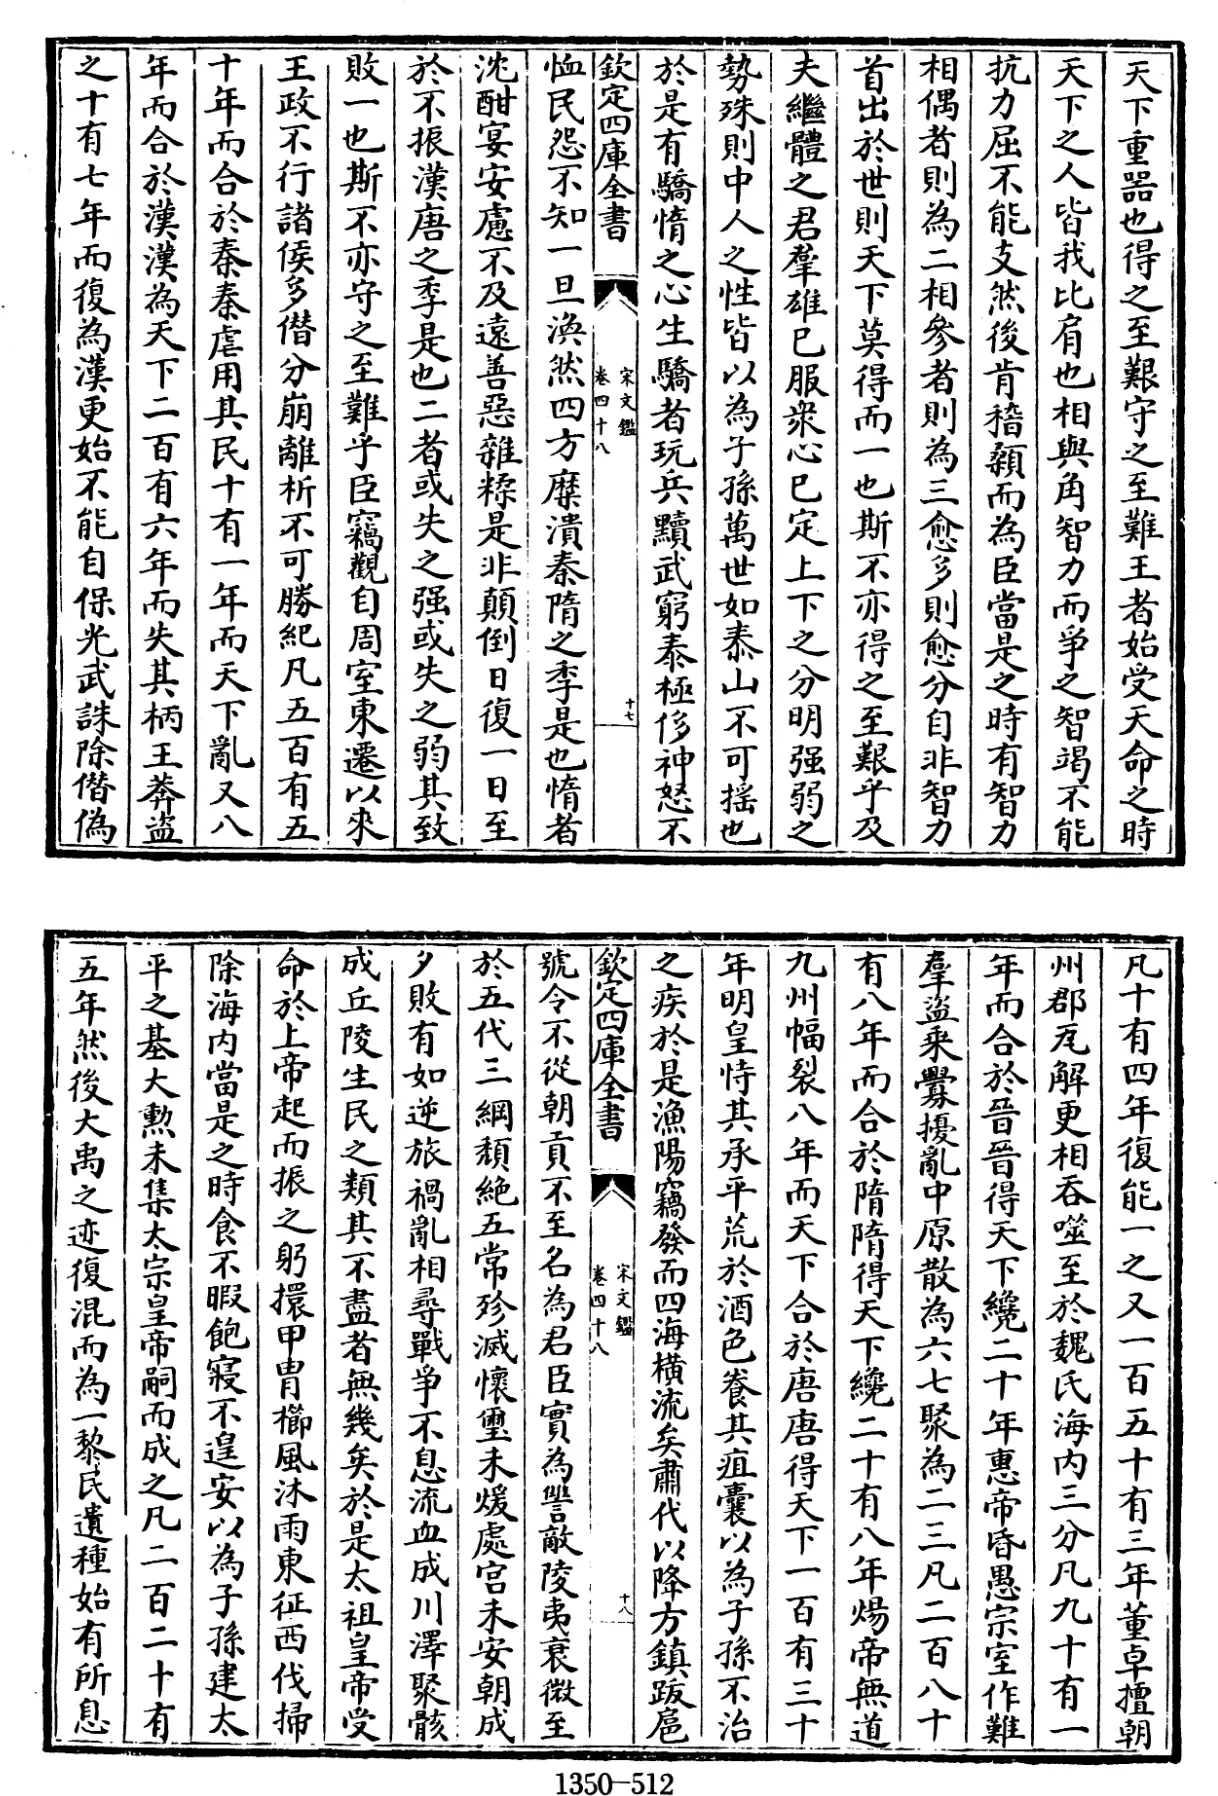 天下重器也得之至艱守之至難王者始受天命之時
天下之人皆我比肩也相與角智力而爭之智竭不能
抗力屈不能支然後肯稽顙而為臣當是之時有智力
相偶者則為二相參者則為三愈多則愈分自非智力
首出於世則天下莫得而一也斯不亦得之至艱乎及
夫繼體之君羣雄已服衆心已定上下之分明强弱之
勢殊則中人之性皆以為子孫萬世如泰山不可揺也
於是有驕惰之心生驕者玩兵黷武窮泰極侈神怒不
欽定四庫全書
宋文鑑
卷四十八
十七
恤民怨不知一旦渙然四方糜潰秦隋之季是也惰者
沈酣宴安慮不及遠善惡雜糅是非顛倒日復一日至
於不振漢唐之季是也二者或失之强或失之弱其致
敗一也斯不亦守之至難乎臣竊觀自周室東遷以來
王政不行諸侯多僭分崩離析不可勝紀凡五百有五
十年而合於秦秦虐用其民十有一年而天下亂又八
年而合於漢漢為天下二百有六年而失其柄王莽盜
之十有七年而復為漢更始不能自保光武誅除僭偽
凡十有四年復能一之又一百五十有三年董卓擅朝
州郡瓦解更相吞噬至於魏氏海内三分凡九十有一
年而合於晉晉得天下纔二十年惠帝昏愚宗室作難
羣盜乘釁擾亂中原散為六七聚為二三凡二百八十
有八年而合於隋隋得天下纔二十有八年煬帝無道
九州幅裂八年而天下合於唐唐得天下一百有三十
年明皇恃其承平荒於酒色養其疽囊以為子孫不治
之疾於是漁陽竊發而四海横流矣肅代以降方鎮跋扈
欽定四庫全書
宋文鑑
卷四十八
十八
號令不從朝貢不至名為君臣實為讐敵陵夷衰微至
於五代三綱頽絶五常殄滅懷璽未煖處宮未安朝成
夕敗有如逆旅禍亂相尋戰爭不息流血成川澤聚骸
成丘陵生民之類其不盡者無幾矣於是太祖皇帝受
命於上帝起而振之躬擐甲胄櫛風沐雨東征西伐掃
除海内當是之時食不暇飽寢不遑安以為子孫建太
平之基大勲未集太宗皇帝嗣而成之凡二百二十有
五年然後大禹之迹復混而為一黎民遺種始有所息
1350-512